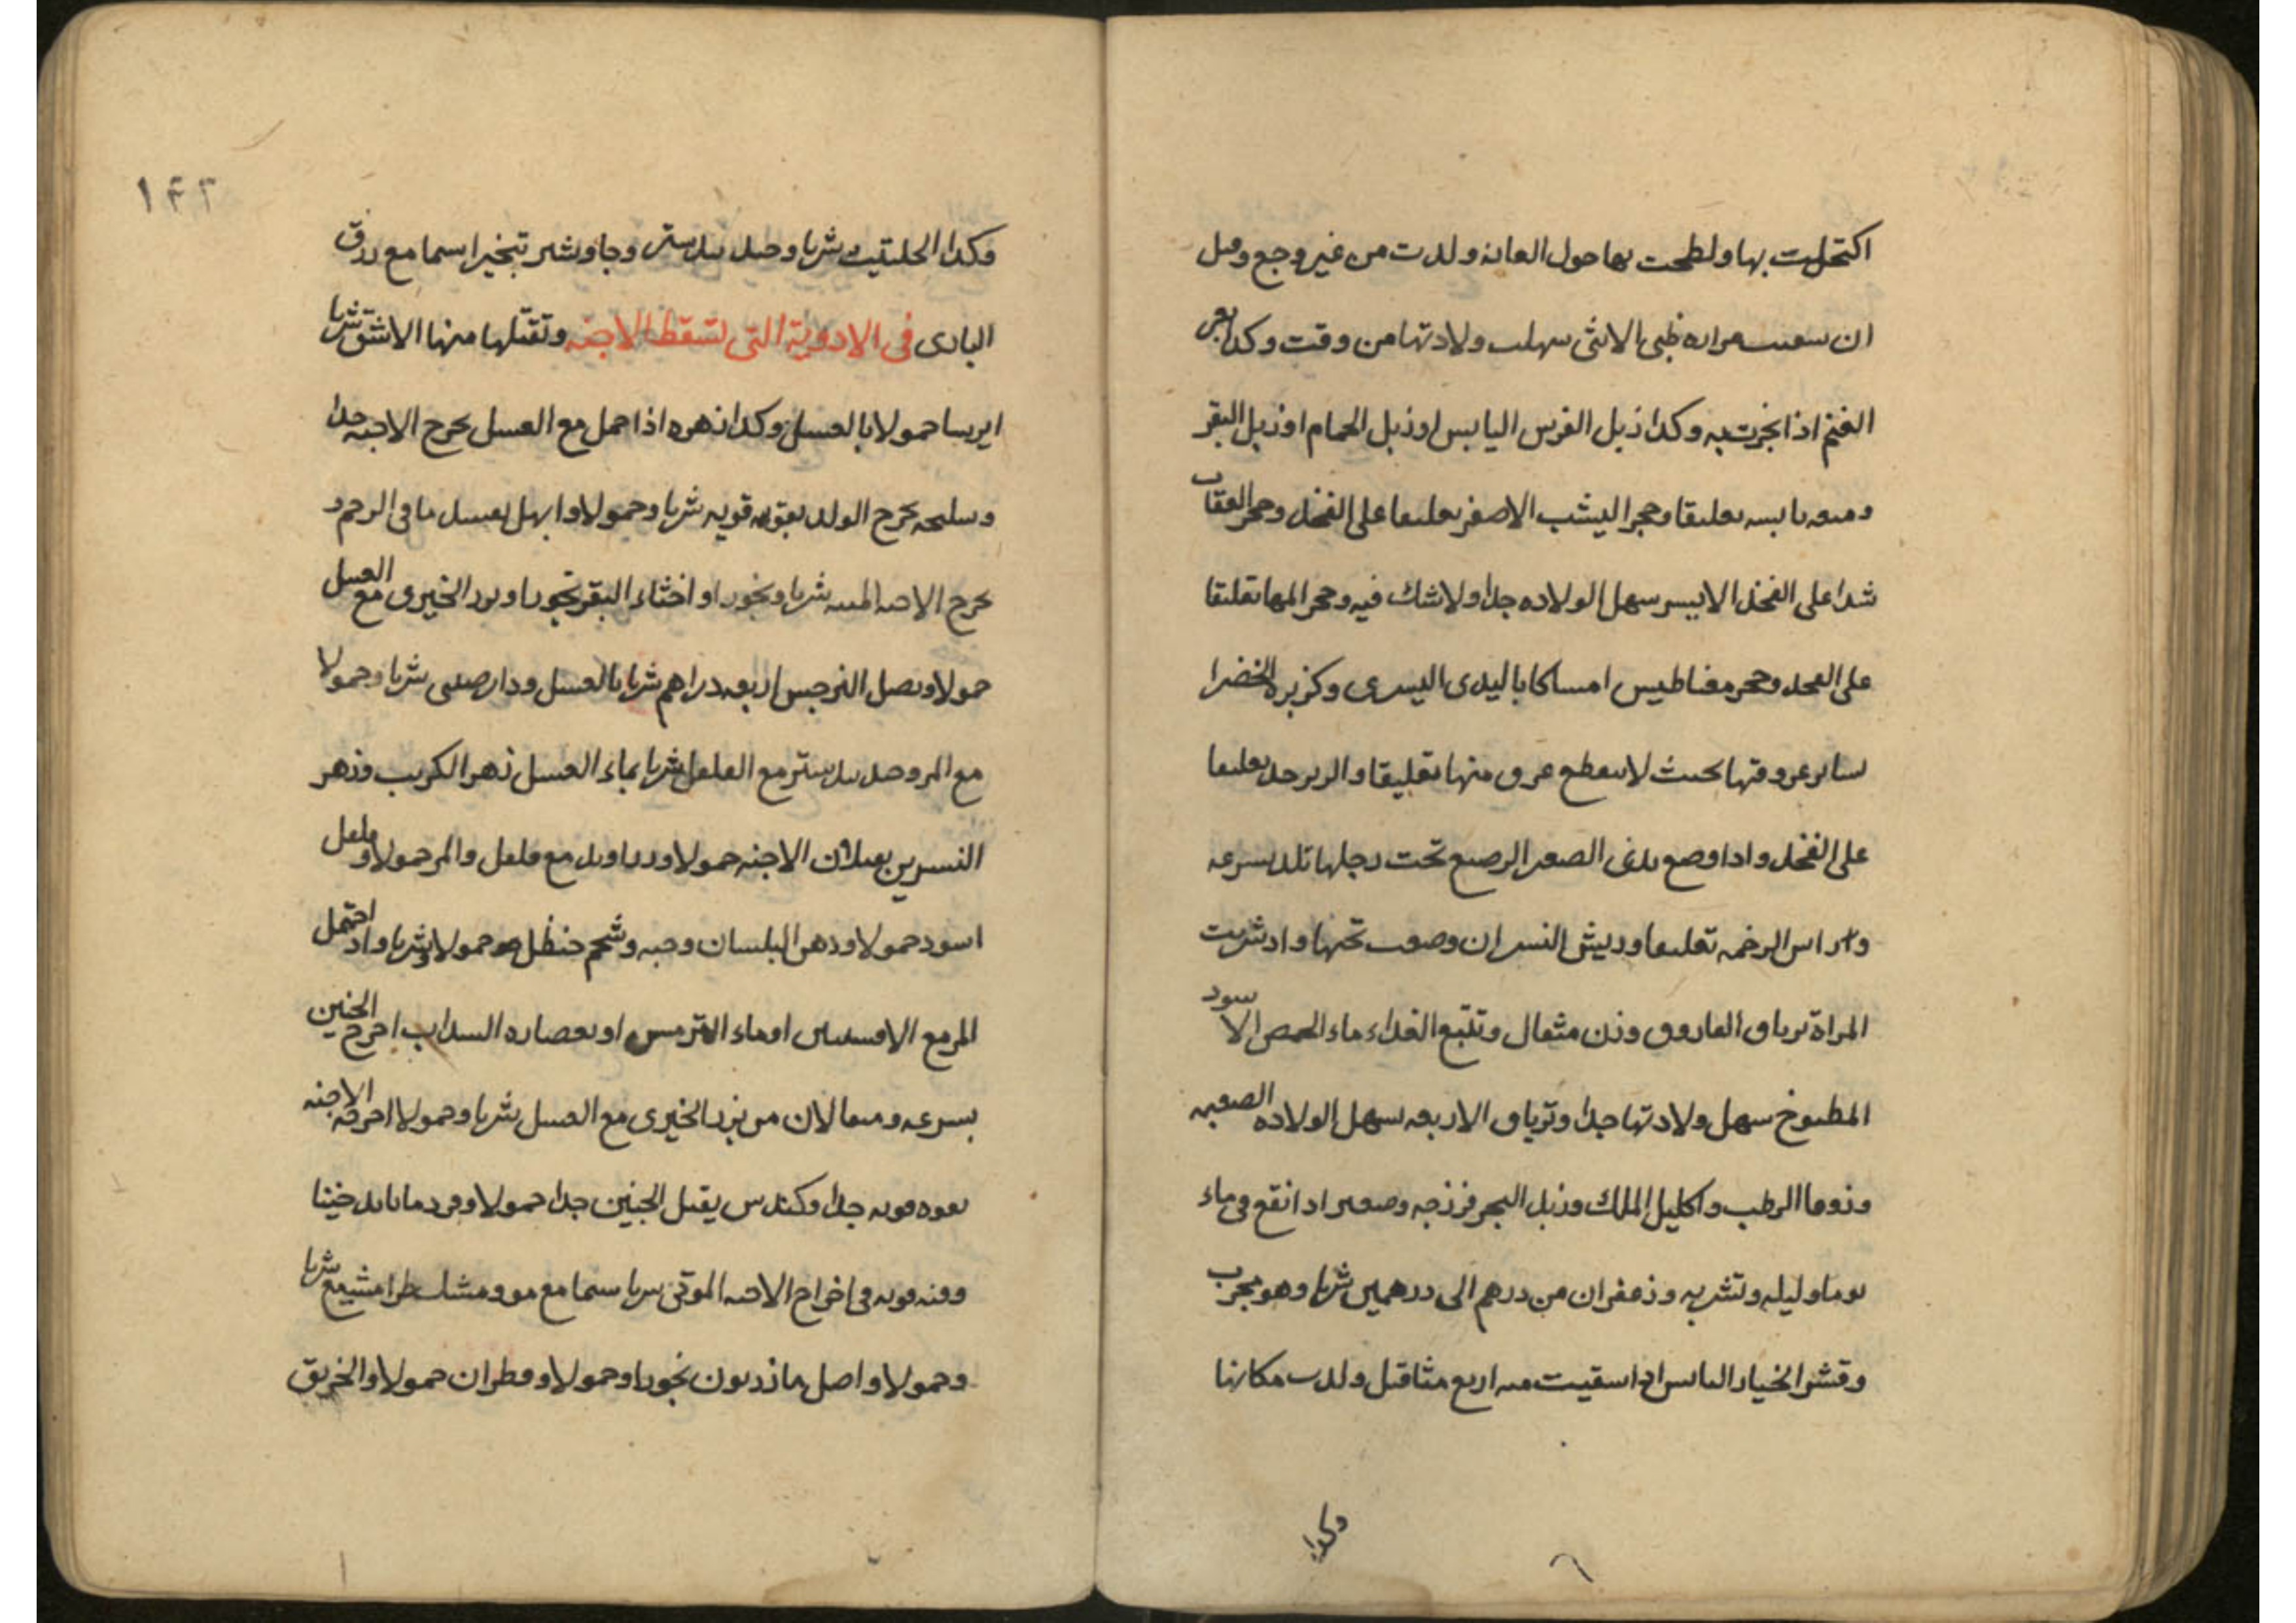 اكتحلت بها ولطخت بها حول العانه ولدت من غير وجع وقيل
ان سقيت مراره ظبي الانثى سهلت ولادتها من وقت وكذا بعر
الغنم اذا بخرت به وكدا زبل الفرس اليابس او زبل الحمام او زبل البقر
وميعه يابسه تعليقا وحجر اليشب الاصفر تعليقا على الفخذ وحجر العقاب
شدا على الفخذ الايسر سهل الولاده جدا ولا شك فيه وحجر المها تعليقا
على الفخد وحجر مغناطيس امساكا باليدى اليسرى وكزبره الخضرا
بسائر عروقها بحيث لا ينقطع عرق منها تعليقا والزبرجد تعليقا
على الفخد واذا وضع تحت رجلها تلد بسرعه
راس الرخمه تعليقا وريش النسر ان وضعت تحتها واد شربت
المراة ترياق الفاروق وزن مثقال وتتبع الغداء ماء الحمص الاسود
المطبوخ سهل ولادتها جدا وترياق الاربعه سهل الولاده الصعبه
وزوفا الرطب واكليل الملك وزبل البحر فرزجه وصعتر ادا نقع في ماء
يوما وليله وتشربه وزعفران من درهم الى درهمين شربا وهو مجرب
وقشر الخيار اليابس اذا سقيت منه اربع مثاقيل ولدت مكانها
وكدا
١٤٢
وكدا الحلتيت شربا وجندبيدستر وجاوشير تبخيرا سيما مع زرق
البازى في الادوية التى تسقط الاجنه وتقتلها منها الاشق شربا
ايرسا حمولا بالعسل وكدا زهره اذا حمل مع العسل يخرج الاجنه جدا
وسليخه يخرج الولد بقوه قويه شربا وحمولا وابهل بعسل ما في الرحم و
يخرج الاجنه الميته شربا وبخورا واخثاء البقر بخورا وبزر الخيرى مع العسل
حمولا وبصل النرجس اربعه دراهم شربا بالعسل ودارصيني شربا وحمولا
مع المر وجندبيدستر مع الفلفل شربا بماء العسل زهر الكرنب وزهر
النسرين يقتلان الاجنه حمولا وزراوند مع فلفل والمر حمولا وفلفل
اسود حمولا ودهن البلسان وحبه وشحم حنظل حمولا وشربا واد احتمل
المر مع الافسنتين او ماء الترمس او بعصاره السداب اخرج الجنين
بسرعه ومثقالان من بزر الخيرى مع العسل شربا وحمولا اخرجه الاجنه
بقوه قويه جدا وكندس يقتل الجنين جدا حمولا وقردمانا تدخينا
وقنه قويه في اخراج الاجنه الموتى شربا سيما مع مر ومشك طرامشيع شربا
وحمولا واصل مازريون بخورا وحمولا وقطران حمولا والخربق